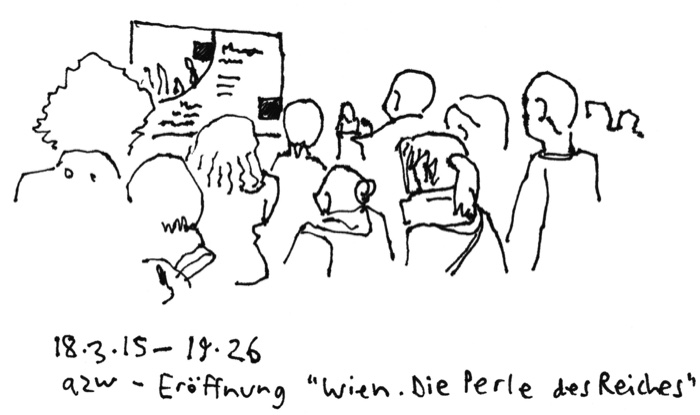 18.3.15 – 19.26
azw – Eröffnung "Wien. Die Perle des Reiches"